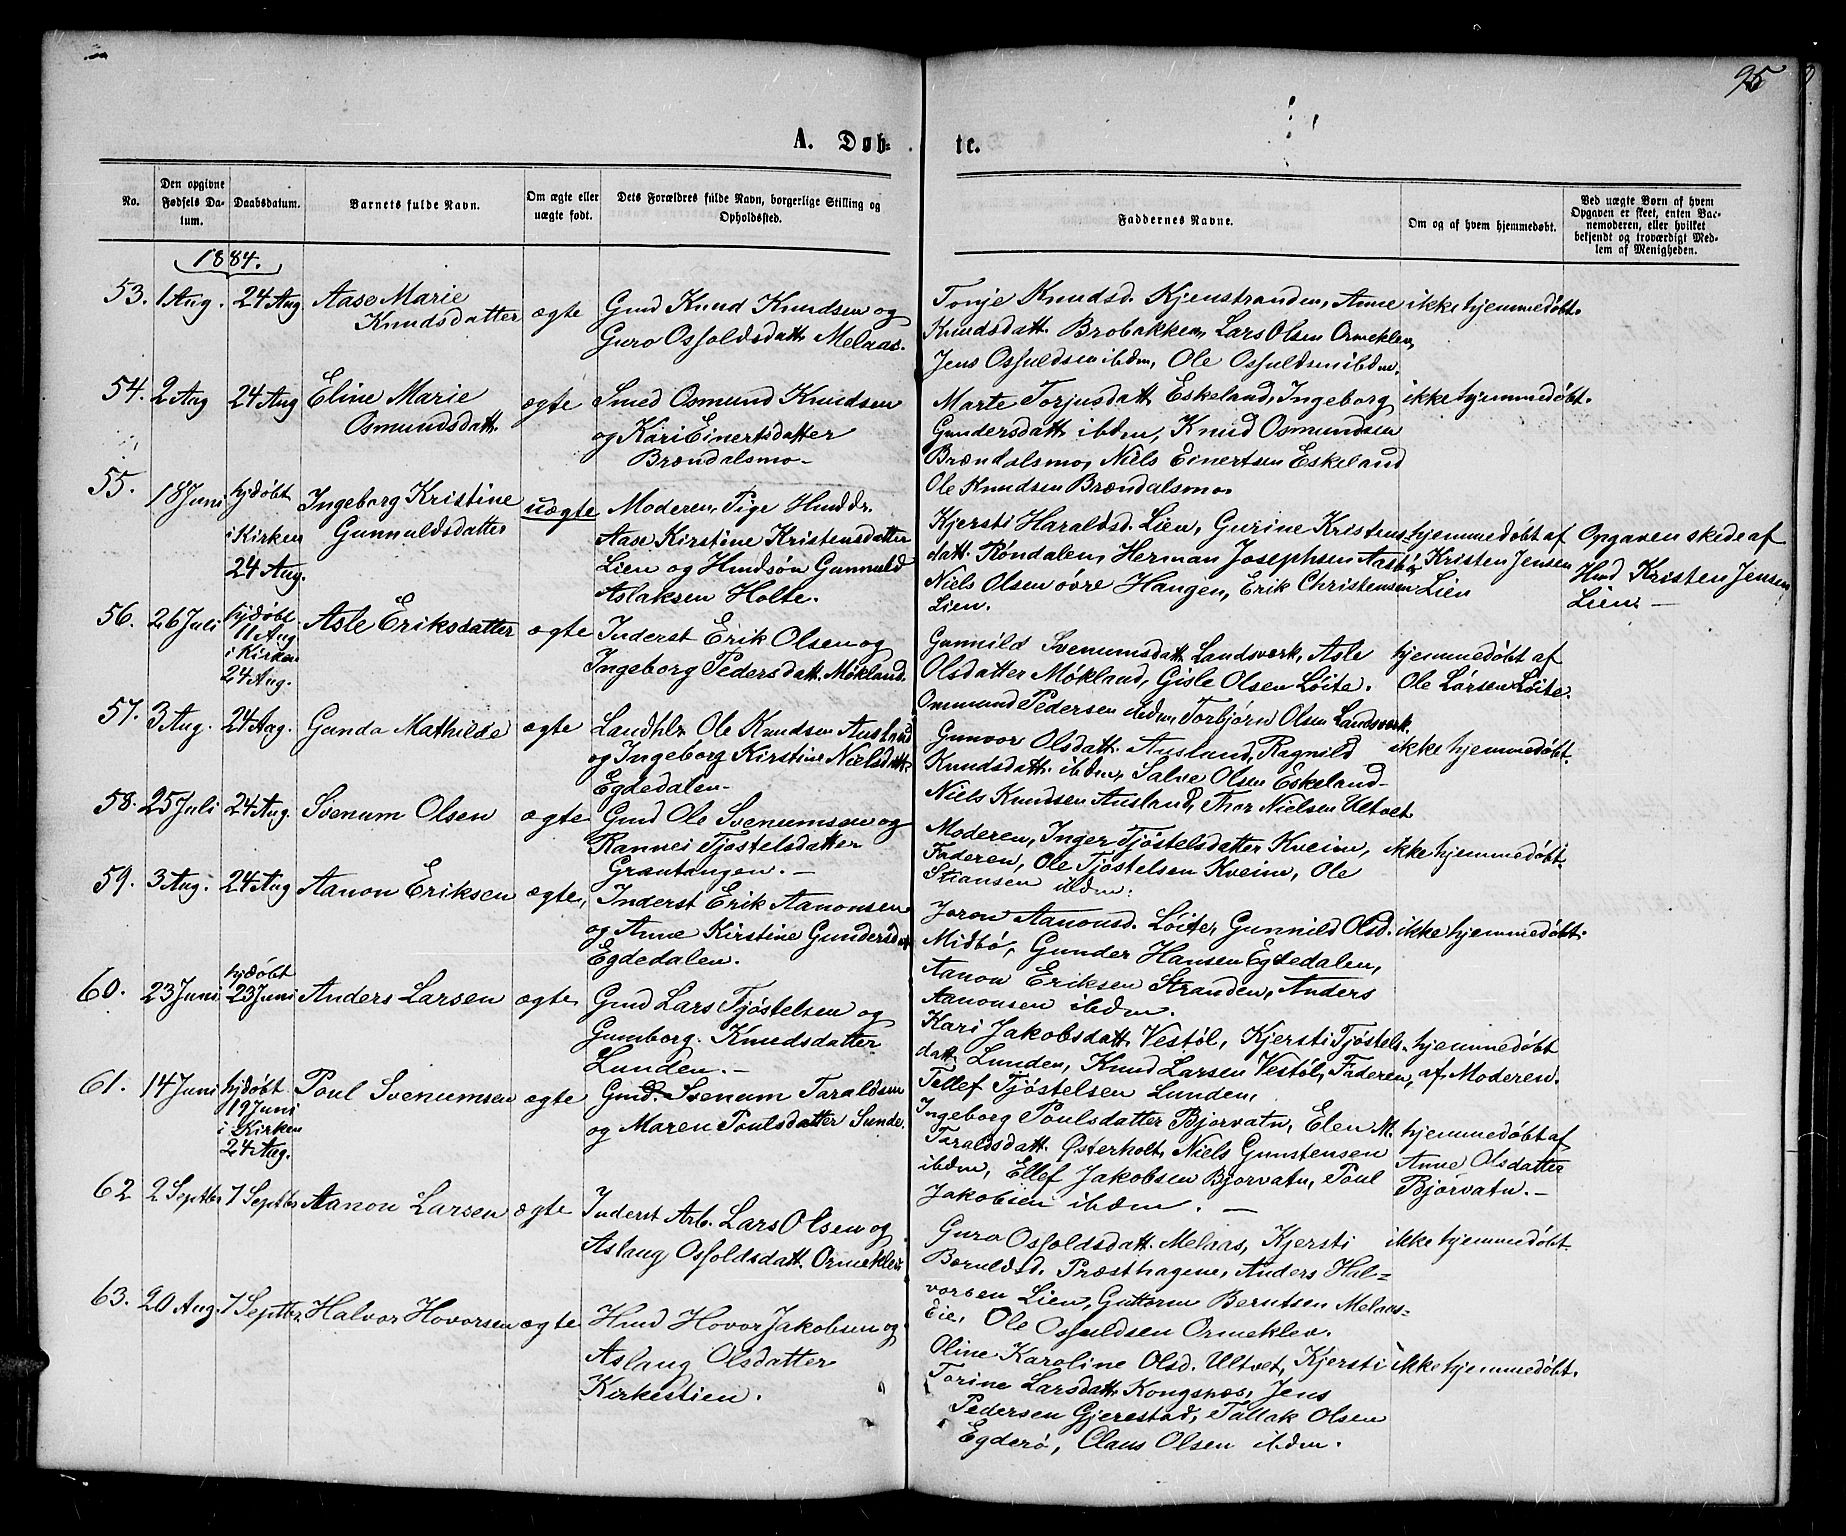 95
A. Døb-
te.
No.
Den opgivne Fødsels Da-tum.
Daabsdatum.
Barnets fulde Navn.
Om ægte eller uægte født.
Dets Forældres fulde Navn, borgerlige Stilling og Opholdssted.
Faddernes Navne.
Om og af hvem hjemmedøbt.
Ved uægte Børn af hvem Opgaven er skeet, enten Bar-nemoderen, eller hvilket bekjendt og troværdigt Med-lem af Menigheden.
1884.
53. 1 Aug. 24 Aug Aase Marie
Knudsdatter ægte
Gmd Knud Knudsen og
Guro Osfoldsdatt. Melaas.
Tonje Knudsd. Kjenstranden, Anne
Knudsdatt. Brobakken, Lars Olsen Ormeklev,
Jens Osfuldsen ibdm, Ole Osfuldsen ibdm.
ikke hjemmedøbt.
54. 2 Aug 24 Aug Eline Marie
Osmundsdatt. ægte
Smed Osmund Knudsen
og Kari Einertsdatter
Brændalsmo-
Marte Torjusdatt Eskeland, Ingeborg
Gundersdatt ibdm, Knud Osmundsen
Brændalsmo, Niels Einertsen Eskeland
Ole Knudsen Brændalsmo.
ikke hjemmedøbt.
55. 18 Juni hjdøbt
i Kirken
24 Aug.
Ingeborg Kristine
Gunnuldsdatter
uægte
Moderen, Pige Husdr.
Aase Kirstine Kristensdatter
Lien og Husdsøn Gunnuld
Aslaksen Holte.
Kjersti Haraldsd. Lien, Gurine Kristens-
datt. Røndalen, Herman Josephsen Aasbø,
Niels Olsen øvre Haugen, Erik Christensen
Lien.
hjemmedøbt af
Kristen Jensen
Lien
Opgaven skede af
Hmd Kristen Jensen
Lien. -
56. 26 Juli hjdøbt
11 Aug
i Kirken
24 Aug.
Asle Eriksdatter ægte
Inderst Erik Olsen og
Ingeborg Pedersdatt. Møkland.
Gunnild Svenumsdatt. Landsverk, Asle
Olsdatter Møkland, Gisle Olsen Løite.
Ommund Pedersen ibdm, Torbjørn Olsen Landsverk.
hjemmedøbt af
Ole Larsen Løite.
57. 3 Aug. 24 Aug. Gunda Mathilde ægte
Landhlr Ole Knudsen Ausland
og Ingeborg Kirstine Nielsdatt.
Egdedalen-
Gunvor Olsdatt. Ausland, Ragnild
Knudsdatt. ibdm, Salve Olsen Eskeland-
Niels Knudsen Ausland, Thor Nielsen Ultvet
ikke hjemmedøbt.
58. 25 Juli 24 Aug. Svenum Olsen ægte
Gmd Ole Svenumsen og
Rannei Tjøstelsdatter
Grøntangen. -
Moderen, Inger Tjøstelsdatter Kveim,
Faderen, Ole Tjøstelsen Kveim, Ole
Stiansen ibdm.
ikke hjemmedøbt.
59. 3 Aug. 24 Aug Aanon Eriksen ægte,
Inderst Erik Aanonsen
og Anne Kirstine Gundersdatt
Egdedalen.
Joron Aanonsd. Løite, Gunnild Olsd.
Midbø, Gunder Hansen Egdedalen,
Aanon Eriksen Stranden, Anders
Aanonsen ibdm.
ikke hjemmedøbt.
60. 23 Juni hjdøbt
23 Juni
Anders Larsen ægte
Gmd Lars Tjøstelsen og
Gunborg. Knudsdatter
Lunden. -
Kari Jakobsdatt. Vestøl, Kjersti Tjøstels-
datt. Lunden, Knud Larsen Vestøl, Faderen,
Tellef Tjøstelsen Lunden,
hjemmedøbt
af Moderen.
61. 14 Juni hjdøbt
19 Juni
i Kirken
24 Aug.
Poul Svenumsen ægte
Gmd. Svenum Taraldsen
og Maren Poulsdatter Sunde.
Ingeborg Poulsdatter Bjorvatn, Elen M.
Taraldsdatt. Østerholt, Niels Gunstensen
ibdm, Ellef Jakobsen Bjorvatn, Poul
Jakobsen ibdm. -
hjemmedøbt af
Anne Olsdatter
Bjorvatn. -
62 2 Septbr 7 Septbr Aanon Larsen ægte
Inderst Arb. Lars Olsen og
Aslaug Osfoldsdatt. Ormeklev
Guro Osfoldsdatt. Melaas, Kjersti
Beruldsd. Præsthagene, Anders Hal-
vorsen Lien, Guttorm Berntsen Melaas-
Eie, Ole Osfuldsen Ormeklev.
ikke hjemmedøbt
63. 20 Aug. 7 Septbr. Halvor Hovorsen ægte
Hmd Hovor Jakobsen og
Aslaug Olsdatter
Kirkestien.
Oline Karoline Olsd. Ultvet, Kjersti
Torine Larsdatt. Kongsnæs, Jens
Pedersen Gjerestad, Tallak Olsen
Egderø, Claus Olsen ibdm.
ikke hjemmedøbt.